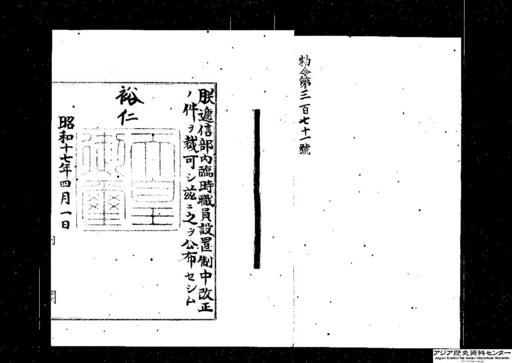 勅令第三百七十一號
朕遞信部內臨時職員設置制中改正
ノ件ヲ裁可シ茲ニ之ヲ公布セシム
裕仁
天皇
御璽
昭和十七年四月一日
アジア歴史資料センター
Japan Center for Asian Historical Records